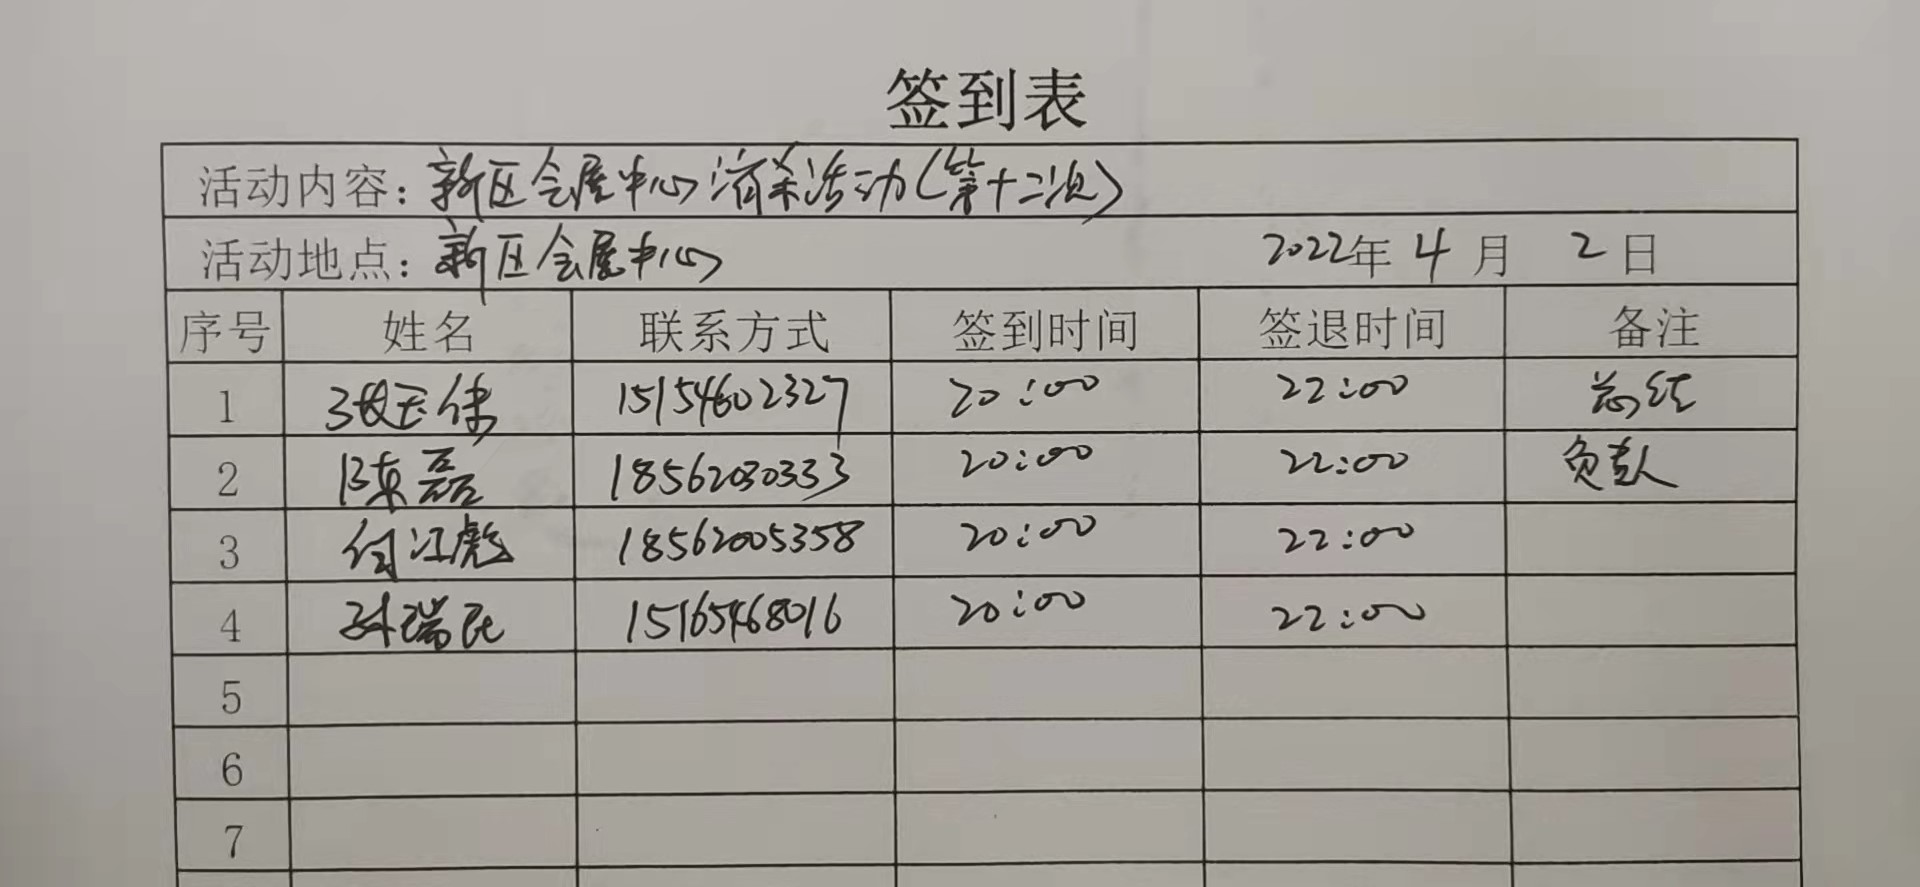 签到表
活动内容：新区会展中心消杀活动（第十二次）
活动地点：新区会展中心 2022年 4 月 2 日
序号 姓名 联系方式 签到时间 签退时间 备注
1 15154602327 20:00 22:00 总结
2 陈磊 18562030333 20:00 22:00
3 付江彪 18562005358 20:00 22:00
4 孙瑞民 15165468016 20:00 22:00
5
6
7